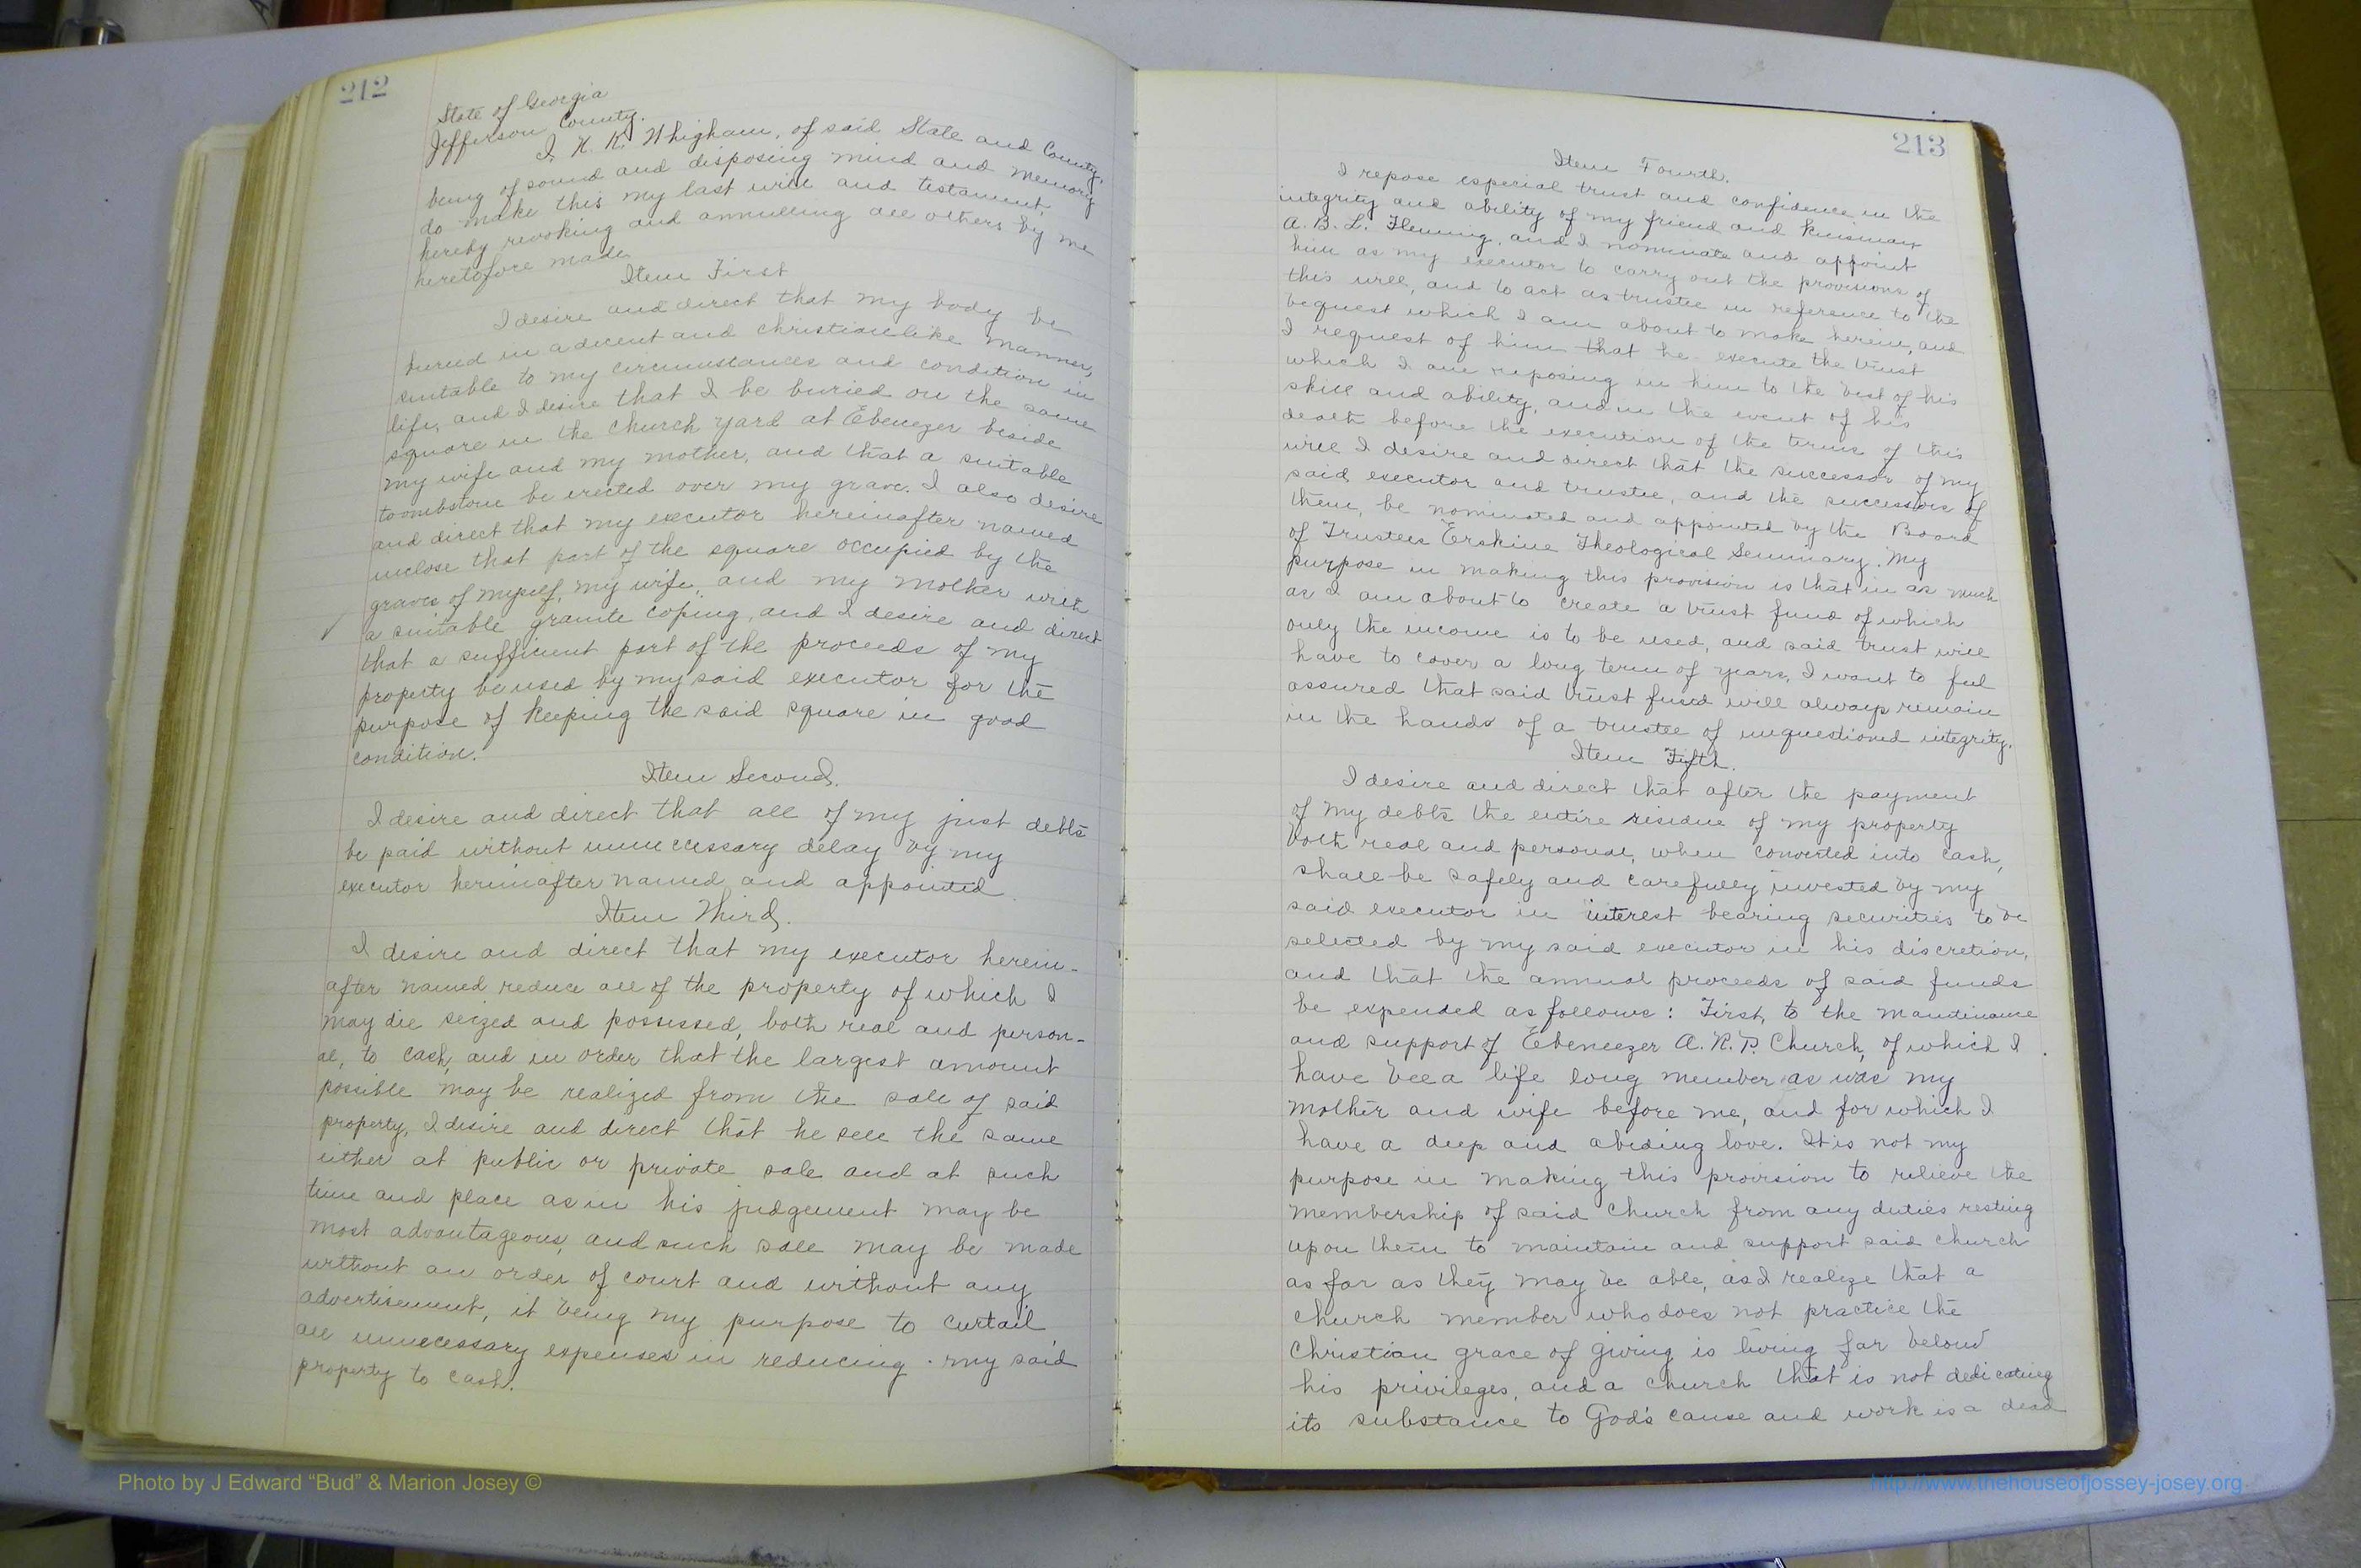 212
State of Georgia
Jefferson County.
I, H. R. Whigham, of said State and County,
being of sound and disposing mind and memory
do make this my last will and testament,
hereby revoking and annulling all others by me
heretofore made
Item First
I desire and direct that my body be
buried in a decent and christianlike manner,
suitable to my circumstances and condition in
life, and I desire that I be buried on the same
square in the church yard at Ebenezer beside
my wife and my mother, and that a suitable
toombstone be erected over my grave. I also desire
and direct that my executor hereinafter named
inclose that part of the square occupied by the
graves of myself, my wife, and my mother with
a suitable granite coping, and I desire and direct
that a sufficient part of the proceeds of my
property be used by my said executor for the
purpose of keeping the said square in good
condition.
Item Second.
I desire and direct that all of my just debts
be paid without unnecessary delay by my
executor hereinafter named and appointed.
Item Third.
I desire and direct that my executor herein-
after named reduce all of the property of which I
may die seized and possessed, both real and person-
al, to cash, and in order that the largest amount
possible may be realized from the sale of said
property, I desire and direct that he sell the same
either at public or private sale and at such
time and place as in his judgement may be
most advantageous, and such sale may be made
without an order of court and without any
advertisement, it being my purpose to curtail
all unnecessary expenses in reducing my said
property to cash.
213
Item Fourth.
I repose especial trust and confidence in the
integrity and ability of my friend and kinsman
A. B. L. Fleming, and I nominate and appoint
him as my executor to carry out the provisions of
this will, and to act as trustee in reference to the
bequest which I am about to make herein, and
I request of him that he execute the trust
which I am reposing in him to the best of his
skill and ability, and in the event of his
death before the execution of the terms of this
will I desire and direct that the successor of my
said executor and trustee, and the successors of
them, be nominated and appointed by the Board
of Trustees Erskine Theological Seminary. My
purpose in making this provision is that in as much
as I am about to create a trust fund of which
only the income is to be used, and said trust will
have to cover a long term of years, I want to feel
assured that said trust fund will always remain
in the hands of a trustee of unquestioned integrity.
Item Fifth.
I desire and direct that after the payment
of my debts the entire residue of my property
both real and personal, when converted into cash,
shall be safely and carefully invested by my
said executor in interest bearing securities to be
selected by my said executor in his discretion,
and that the annual proceeds of said funds
be expended as follows: First, to the maintenance
and support of Ebeneezer A. R. P. Church, of which I
have bee a life long member as was my
mother and wife before me, and for which I
have a deep and abiding love. It is not my
purpose in making this provision to relieve the
membership of said church from any duties resting
upon them to maintain and support said church
as far as they may be able, as I realize that a
church member who does not practice the
Christian grace of giving is living far below
his privileges, and a church that is not dedicating
its substance to God's cause and work is a dead
Photo by J Edward “Bud” & Marion Josey ©
http://www.thehouseofjossey-josey.org